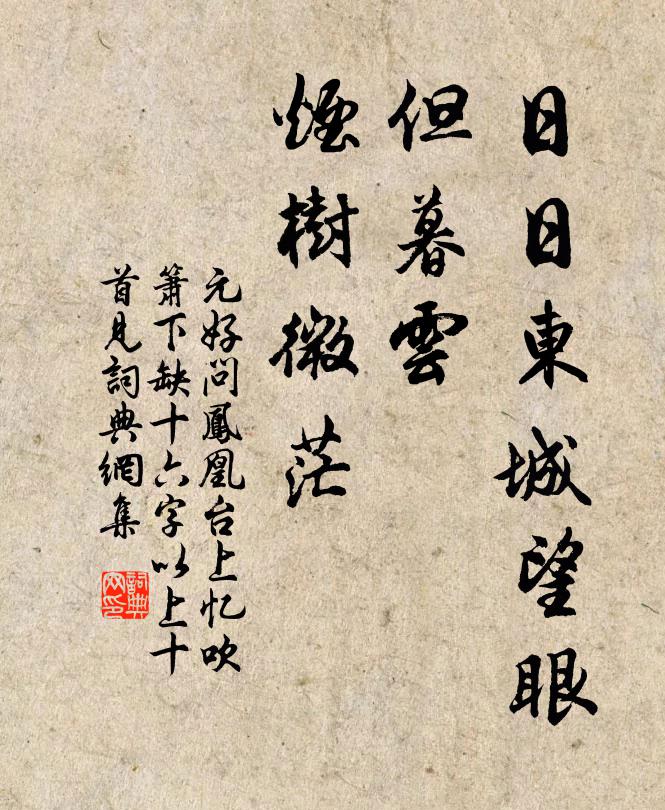 日日東城望眼
但暮雲
煙樹微茫
元好问鳳凰台上忆吹
簫下缺十六字以上十
首見詞典網集
詞典
网印